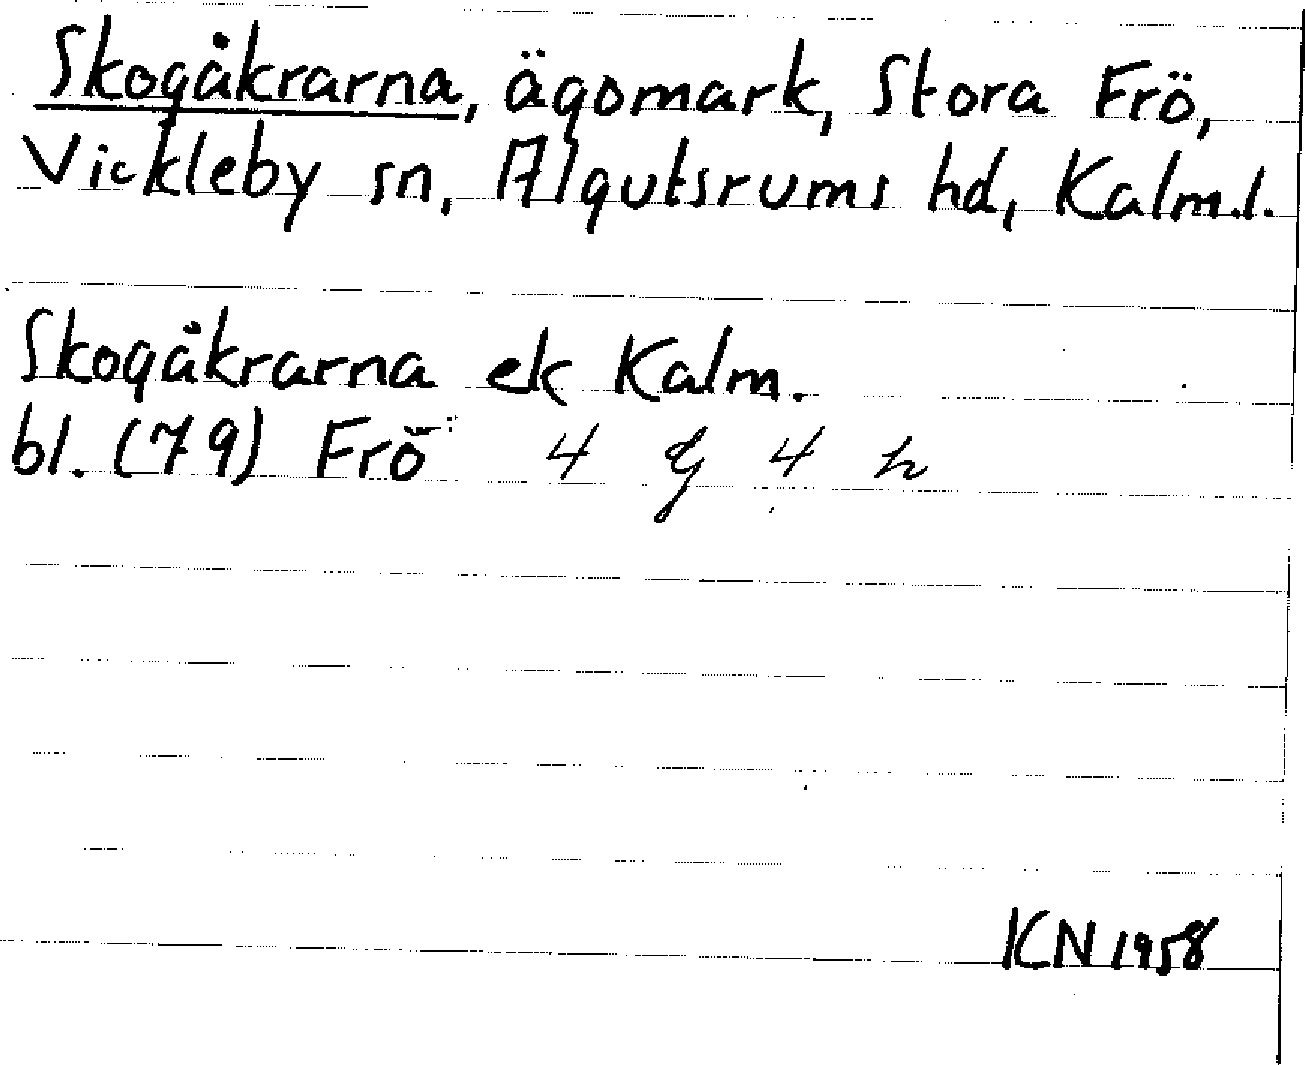 Skogåkrarna, ägomark, Stora Frö,
Vickleby sn, Algutsrums hd, Kalm.l.
Skogåkrarna ek Kalm.
bl. (79) Frö 4 g 4 h
KN 1958